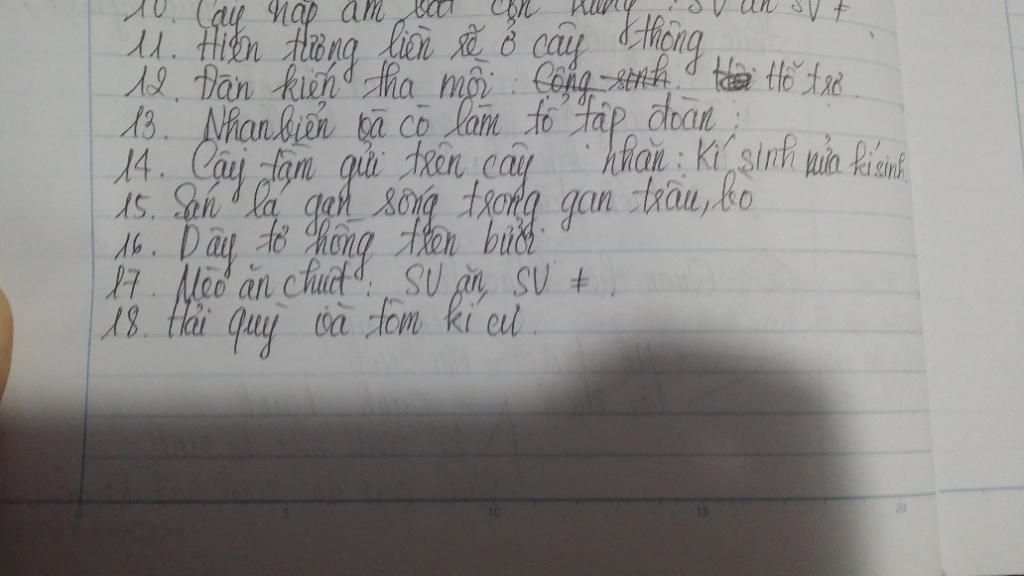 10. Cây nắp ấm bắt côn trùng : SV ăn SV ≠
11. Hiện tượng liền rễ ở cây thông
12. Đàn kiến tha mồi : Cộng sinh. Hỗ trợ.
13. Nhạn biển và cò làm tổ tập đoàn :
14. Cây tầm gửi trên cây nhãn : Kí sinh nửa kí sinh.
15. Sán lá gan sống trong gan trâu, bò
16. Dây tơ hồng trên bưởi
17. Mèo ăn chuột : SV ăn SV ≠ .
18. Hải quỳ và tôm kí cư.
5 10 15 20